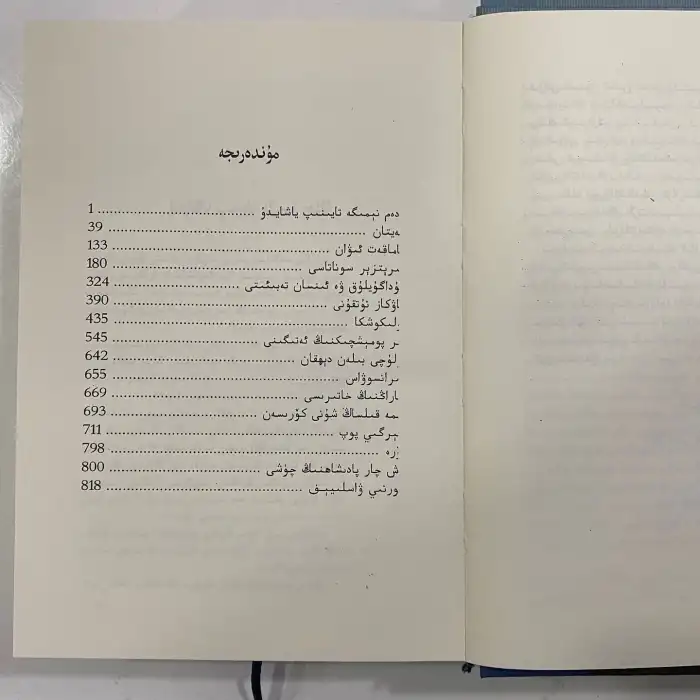 مۇندەرىجە
دەم نېمىگە تايىنىپ ياشايدۇ ........ 1
ەيتان ........ 39
اماقەت ئىۋان ........ 133
ىرېتزېر سوناتاسى ........ 180
ۇداگۇيلۇق ۋە ئىنسان تەبىئىتى ........ 324
اۋكاز تۇتقۇنى ........ 390
ولىكوشكا ........ 435
ىر پومېشچىكنىڭ ئەتىگىنى ........ 545
ولۇچى بىلەن دېھقان ........ 642
ىرانسوۋاس ........ 655
ىاراڭنىڭ خاتىرىسى ........ 669
ىمە قىلساڭ شۇنى كۆرىسەن ........ 693
ېرگىي پوپ ........ 711
زرە ........ 798
ش چار پادىشاھنىڭ چۈشى ........ 800
ورنىي ۋاسلىيېف ........ 818